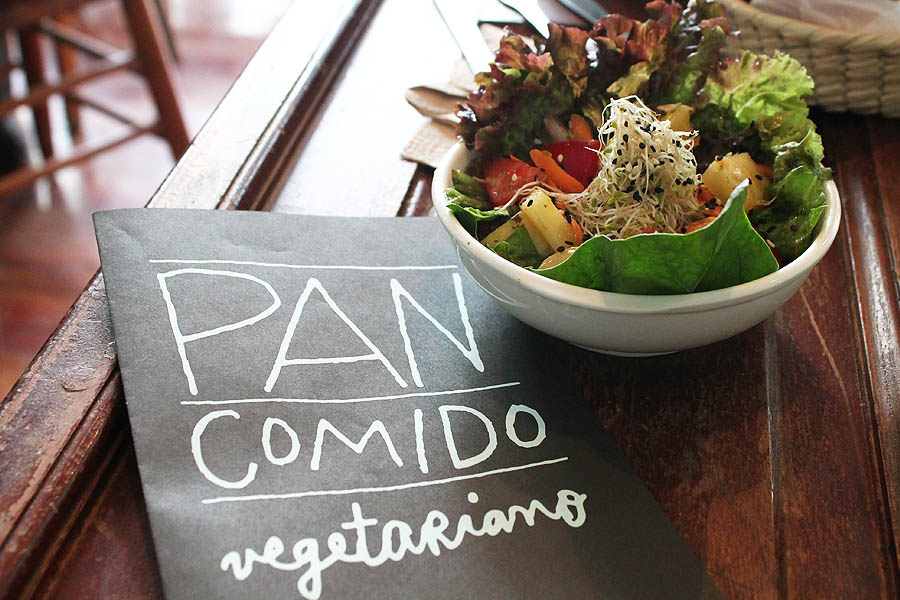 PAN
COMIDO
vegetaRiano